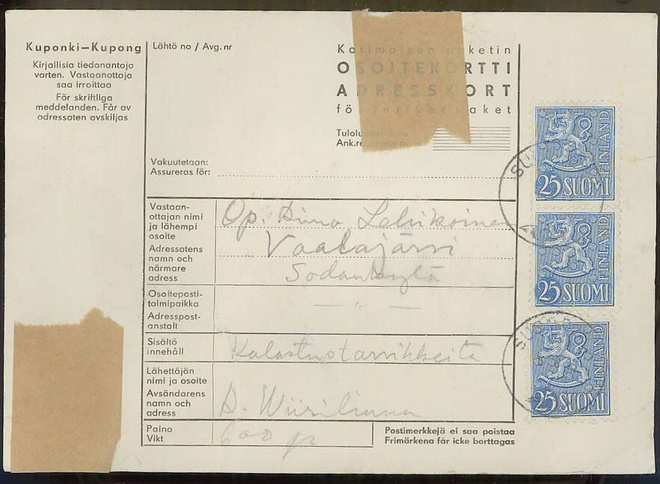 Kuponki—Kupong
Kirjallisia tiedonantoja
varten. Vastaanottaja
saa irroittaa
För skriftliga
meddelanden. Får av
adressaten avskiljas
Lähtö no / Avg. nr
Kotimaisen paketin
OSOITEKORTTI
ADRESSKORT
för inrikes paket
Tulolu
Ank.re
Vakuutetaan:
Assureras för:
Vastaan-
ottajan nimi
ja lähempi
osoite
Adressatens
namn och
närmare
adress
Op. Lehikoinen
Vaalajärvi
Sodankylä
Osoiteposti-
toimipaikka
Adresspost-
anstalt
— " —
Sisältö
innehåll
Kalastustarvikkeita
Lähettäjän
nimi ja osoite
Avsändarens
namn och
adress
D. Wiirilinna
Paino
Vikt
600 gr
Postimerkkejä ei saa poistaa
Frimärkena får icke borttagas
FINLAND
25 SUOMI
FINLAND
25 SUOMI
FINLAND
25 SUOMI